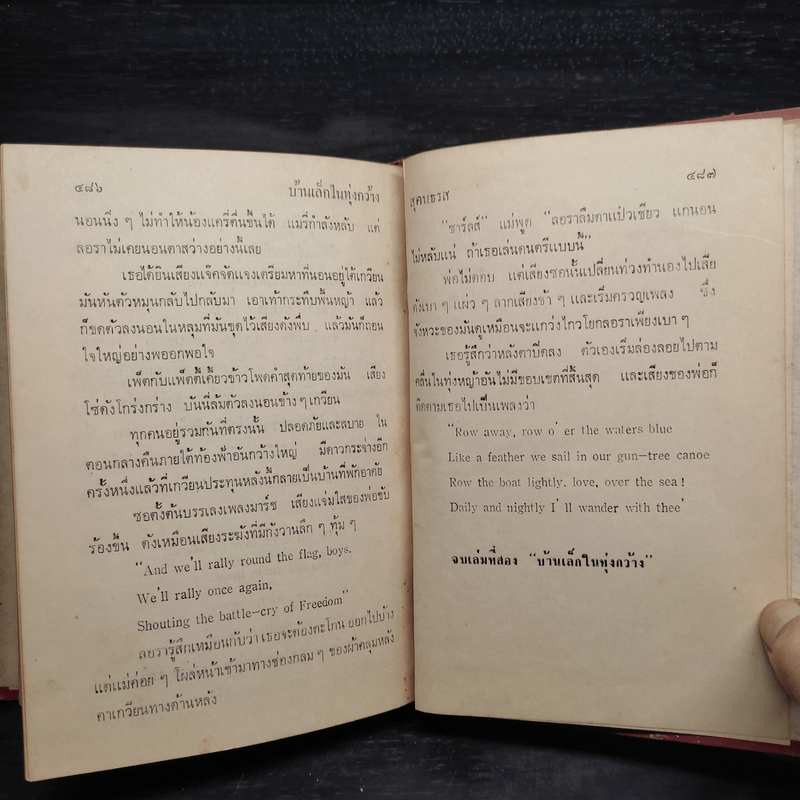 ๔๘๖
บ้านเล็กในทุ่งกว้าง
นอนนิ่ง ๆ ไม่ทำให้น้องแคร์รี่ตื่นขึ้นได้ แมรี่กำลังหลับ แต่
ลอราไม่เคยนอนตาสว่างอย่างนี้เลย
เธอได้ยินเสียงแจ๊คจัดแจงเตรียมหาที่นอนอยู่ใต้เกวียน
มันหันตัวหมุนกลับไปกลับมา เอาเท้ากระทืบพื้นหญ้า แล้ว
ก็ขดตัวลงนอนในหลุมที่มันขุดไว้เสียงดังพึ่บ แล้วมันก็ถอน
ใจใหญ่อย่างพออกพอใจ
เพ็ตกับแพ็ตตี้เคี้ยวข้าวโพดคำสุดท้ายของมัน เสียง
โซ่ดังโกร่งกร่าง บันนี่ล้มตัวลงนอนข้าง ๆ เกวียน
ทุกคนอยู่รวมกันที่ตรงนั้น ปลอดภัยและสบาย ใน
ตอนกลางคืนภายใต้ท้องฟ้าอันกว้างใหญ่ มีดาวกระจ่างอีก
ครั้งหนึ่งแล้วที่เกวียนประทุนหลังนี้กลายเป็นบ้านที่พักอาศัย
ซอตั้งต้นบรรเลงเพลงมาร์ช เสียงแจ่มใสของพ่อขับ
ร้องขึ้น ดังเหมือนเสียงระฆังที่มีกังวานลึก ๆ ทุ้ม ๆ
"And we'll rally round the flag, boys.
We'll rally once again,
Shouting the battle-cry of Freedom"
ลอรารู้สึกเหมือนกับว่า เธอจะต้องตะโกน ออกไปบ้าง
แต่แม่ค่อย ๆ โผล่หน้าเข้ามาทางช่องกลม ๆ ของผ้าคลุมหลัง
คาเกวียนทางด้านหลัง
สุคนธรส
๔๘๗
"ชาร์ลส์" แม่พูด "ลอราลืมตาแป๋วเชียว แกนอน
ไม่หลับแน่ ถ้าเธอเล่นดนตรีแบบนี้"
พ่อไม่ตอบ แต่เสียงซอนั้นเปลี่ยนท่วงทำนองไปเสีย
ดังเบา ๆ แผ่ว ๆ ลากเสียงช้า ๆ และเริ่มครวญเพลง ซึ่ง
จังหวะของมันดูเหมือนจะแกว่งไกวโยกลอราเพียงเบา ๆ
เธอรู้สึกว่าหลังตาปิดลง ตัวเองเริ่มล่องลอยไปตาม
คลื่นในทุ่งหญ้าอันไม่มีขอบเขตที่สิ้นสุด และเสียงของพ่อก็
ติดตามเธอไปเป็นเพลงว่า
"Row away, row o' er the waters blue
Like a feather we sail in our gun-tree canoe
Row the boat lightly, love, over the sea !
Daily and nightly I' ll wander with thee'
จบเล่มที่สอง "บ้านเล็กในทุ่งกว้าง"